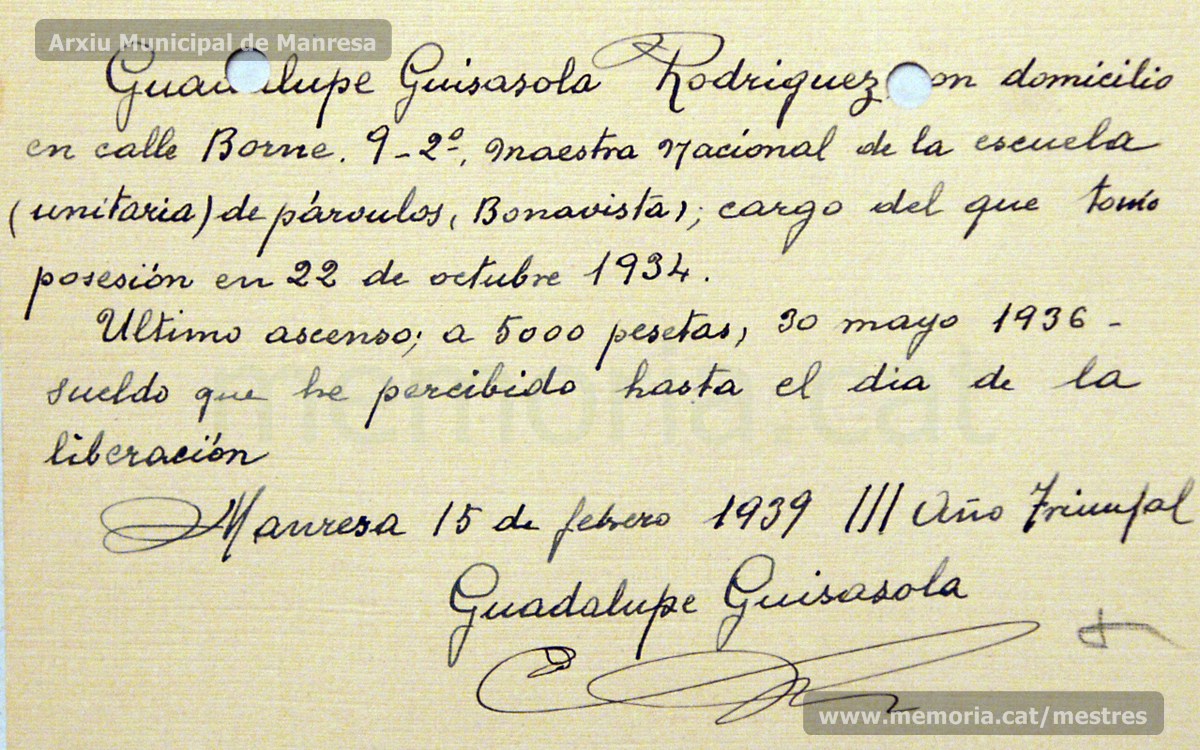 Arxiu Municipal de Manresa
Guadalupe Guisasola Rodriguez, con domicilio
en calle Borne. 9-2º, maestra nacional de la escuela
(unitaria) de párvulos, Bonavista,; cargo del que tomó
posesión en 22 de octubre 1934.
Ultimo ascenso; a 5000 pesetas, 30 mayo 1936 -
sueldo que he percibido hasta el dia de la
liberación
Manresa 15 de febrero 1939 III Año Triunfal
Guadalupe Guisasola
memoria.cat
www.memoria.cat/mestres